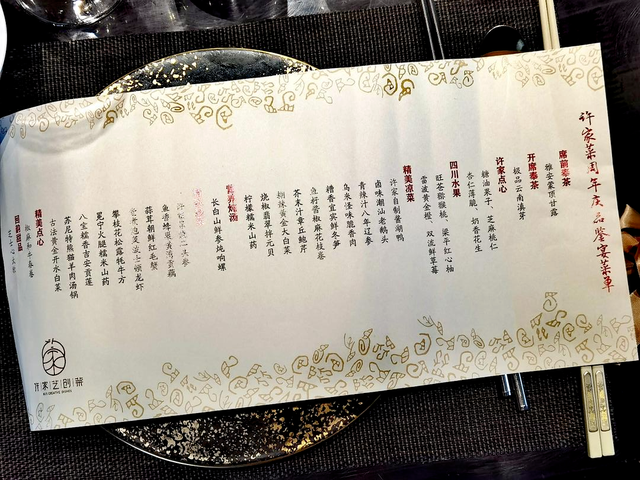 许家菜周年庆品鉴宴菜单
席前奉茶
雅安蒙顶甘露
开席奉茶
极品云南滇芽
许家点心
糖油果子、芝麻桃仁
杏仁薄脆、奶香花生
四川水果
旺苍猕猴桃、梁平红心柚
雷波黄金橙、双流鲜草莓
精美凉菜
许家自制酱湖鸭
卤味潮汕老鹅头
青辣汁八年辽参
乌米连味脆香肉
糟香宜宾鲜冬笋
鱼籽酱椒麻花枝卷
芥末汁章丘鲍芹
烧椒翡翠拌元贝
柠檬糯米山药
长白山鲜参炖响螺
蒜茸朝鲜红毛蟹
攀枝花松露牦牛方
冕宁火腿糯米山药
八宝糯香吉安菌莲
苏尼特熊猫羊肉汤锅
古法黄金开水白菜
精美点心
回蔚甜品
许家艺创菜